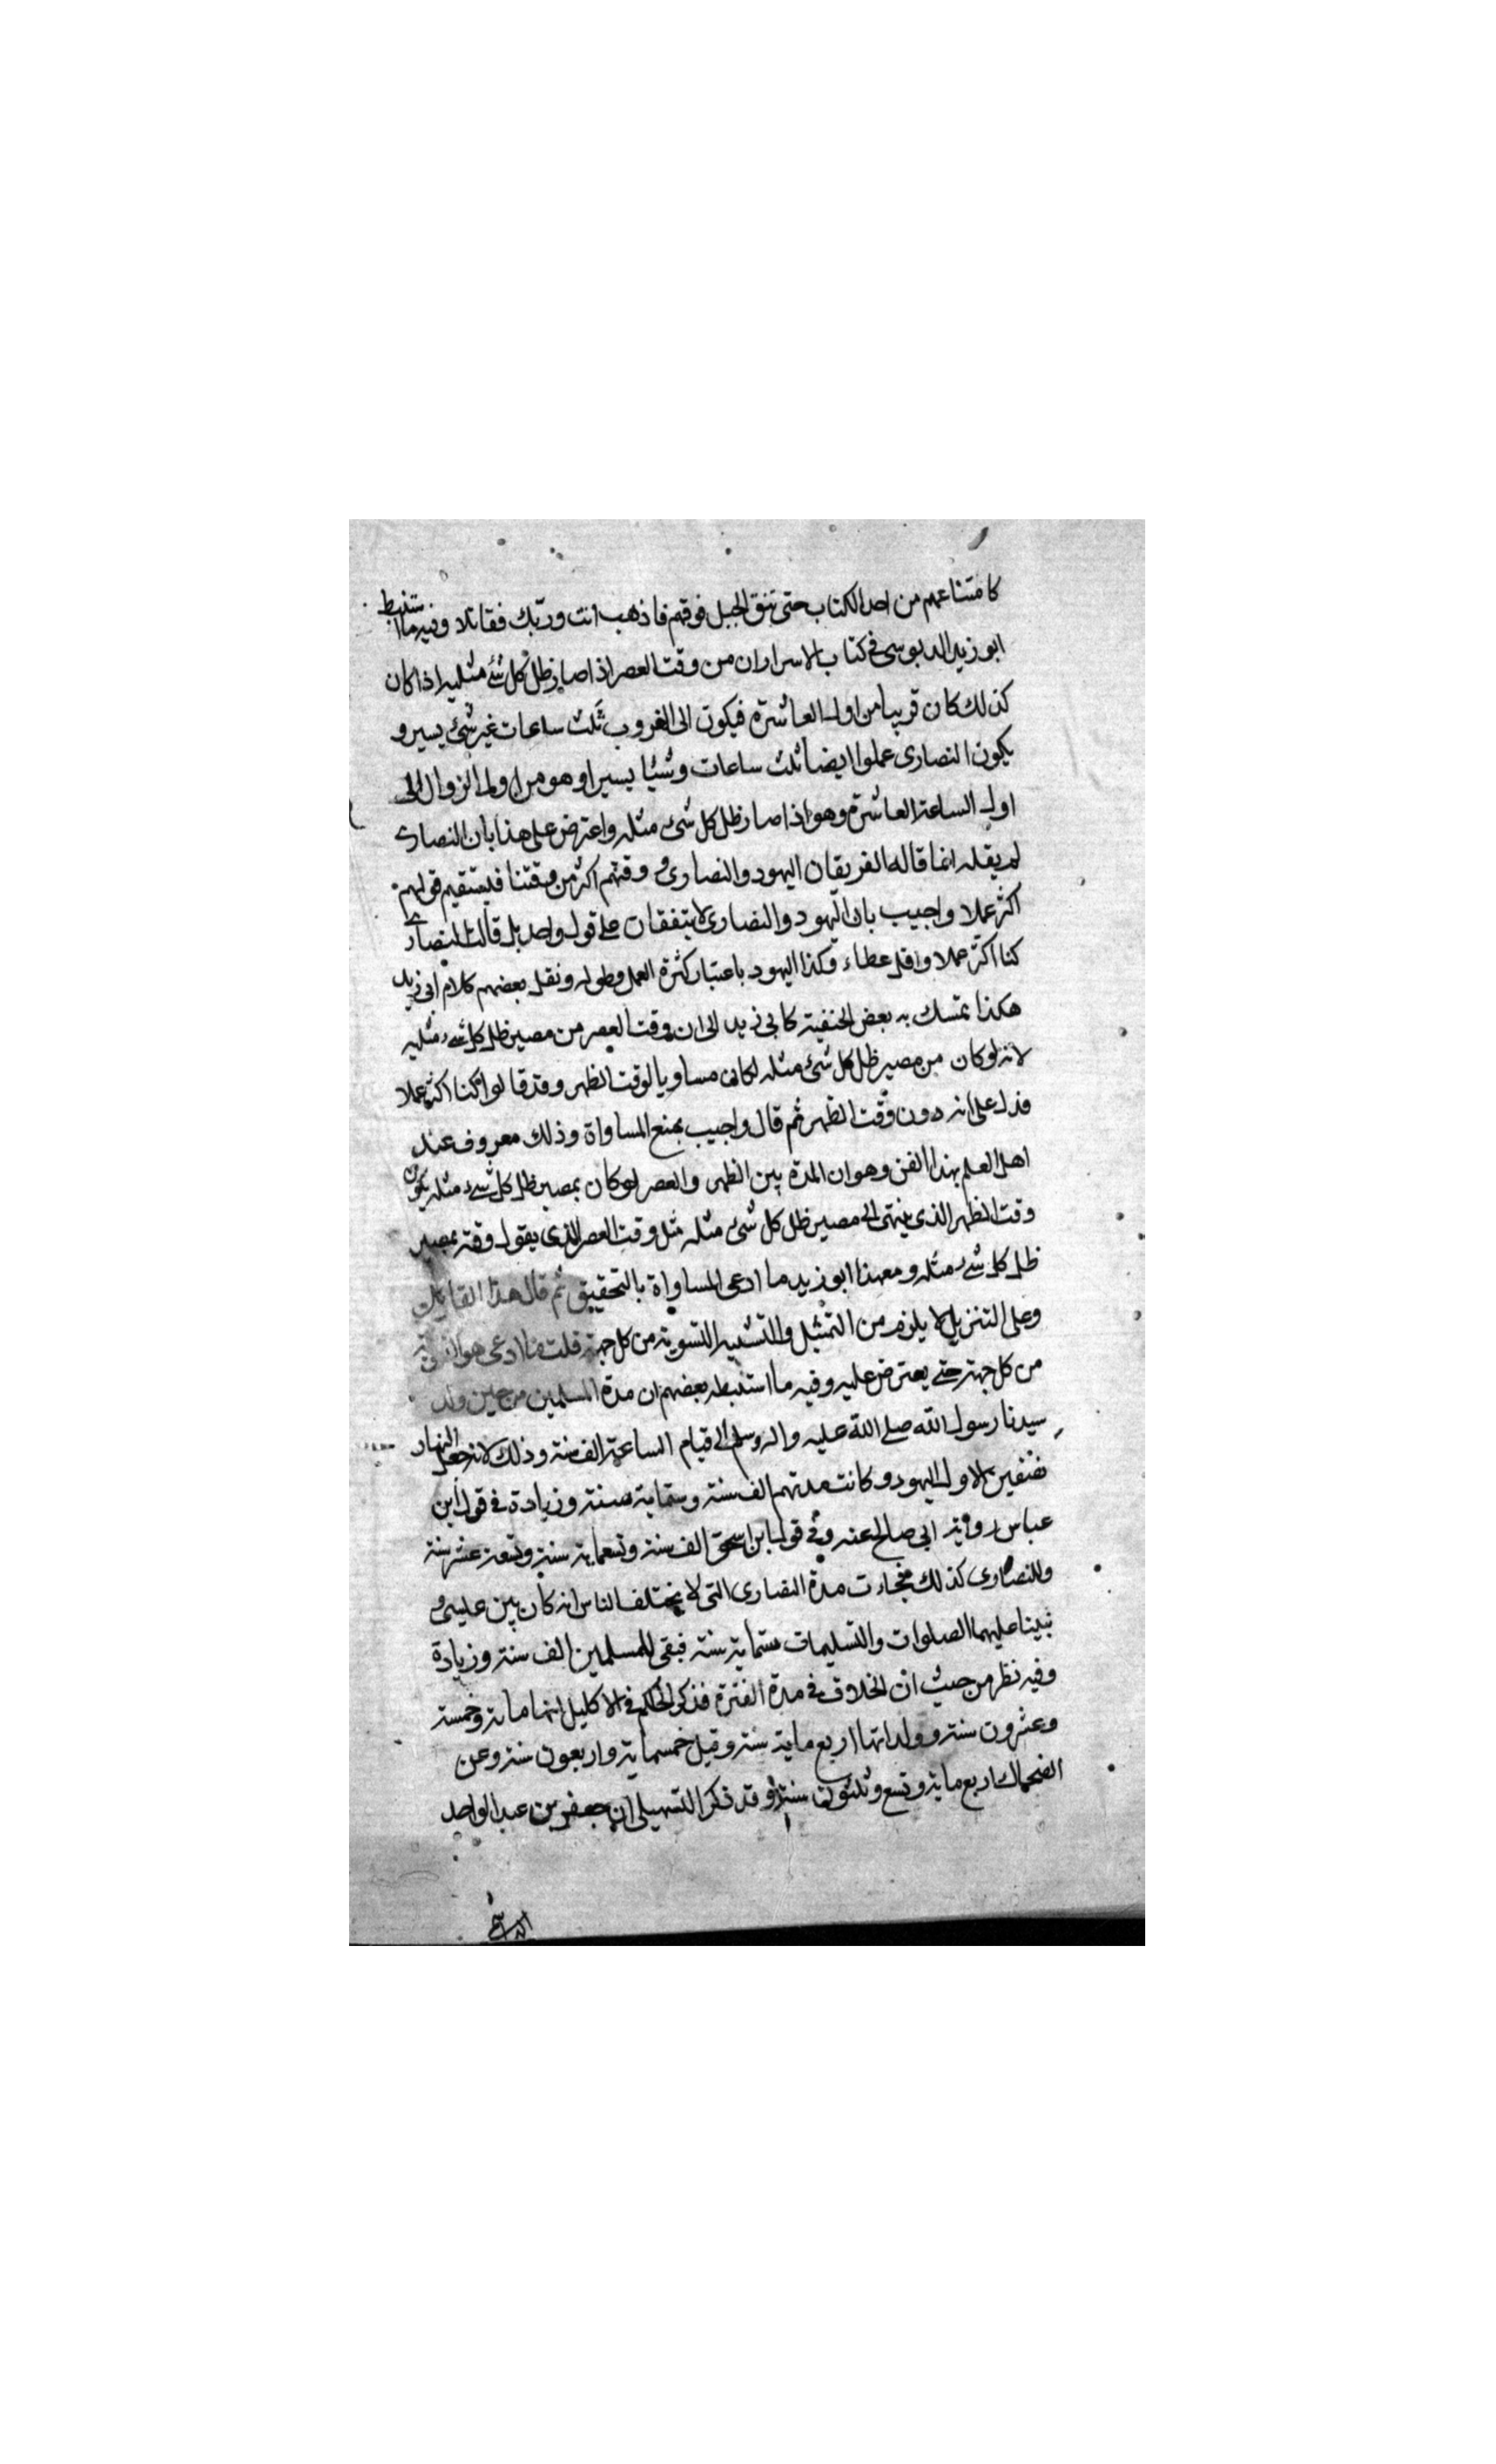 كامتناعهم من اخذ الكتاب حتى نتق الجبل فوقهم فاذهب انت وربك فقاتلا وفيه ما استنبط
ابو زيد الدبوسى فى كتاب الاسرار ان من وقت العصر اذا صار ظل كل شئ مثليه اذا كان
كذلك كان قريبا من اول العاشرة فيكون الى الغروب ثلث ساعات غير شئ يسير و
يكون النصارى عملوا ايضا ثلث ساعات وشيئا يسيرا وهو من اول الزوال الى
اول الساعة العاشرة وهو اذا صار ظل كل شئ مثله واعترض على هذا بان النصارى
لم يقله انما قاله الفريقان اليهود والنصارى ووقتهم اكثر من وقتنا فيستقيم قولهم
اكثر عملا واجيب بان اليهود والنصارى لا يتفقان على قول واحد بل قالت النصارى
كنا اكثر عملا واقل عطاء وكذا اليهود باعتبار كثرة العمل وطوله ونقل بعضهم كلام ابى زيد
هكذا تمسك به بعض الحنفية كابى زيد الى ان وقت العصر من مصير ظل كل شئ مثليه
لانه لو كان من مصير ظل كل شئ مثله لكان مساويا لوقت الظهر وقد قالوا كنا اكثر عملا
فدل على انه دون وقت الظهر ثم قال واجيب بمنع المساواة وذلك معروف عند
اهل العلم بهذا الفن وهو ان المدة بين الظهر والعصر لو كان بمصير ظل كل شئ مثله يكون
وقت الظهر الذى ينتهى الى مصير ظل كل شئ مثله مثل وقت العصر الذى يقول وقته بمصير
ظل كل شئ مثله ومع هذا ابو زيد ما ادعى المساواة بالتحقيق ثم قال هذا القائل
وعلى التنزيل لا يلزم من التمثيل والتشبيه التسوية من كل جهة قلت ما ادعى هو التسوية
من كل جهة حتى يعترض عليه وفيه ما استنبطه بعضهم ان مدة المسلمين من حين ولد
سيدنا رسول الله صلى الله عليه واله وسلم الى قيام الساعة الف سنة وذلك لانه جعل النهار
نصفين الاول لليهود وكانت مدتهم الف سنة وستماية سنة وزيادة فى قول ابن
عباس رواية ابى صالح عنه وفى قول ابن اسحق الف سنة وتسعماية سنة وتسعة عشر سنة
وللنصارى كذلك فجاءت مدة النصارى التى لا يختلف الناس انه كان بين عيسى و
نبينا عليهما الصلوات والتسليمات ستماية سنة فبقى للمسلمين الف سنة وزيادة
وفيه نظر من حيث ان الخلاف فى مدة الفترة فذكر الحاكم فى الاكليل انها ماية وخمسة
وعشرون سنة انها اربع ماية سنة وقيل خمسماية واربعون سنة وعن
الضحاك اربع ماية وتسع وثلثون سنة وقد ذكر السهيلى ان جعفر بن عبد الواحد